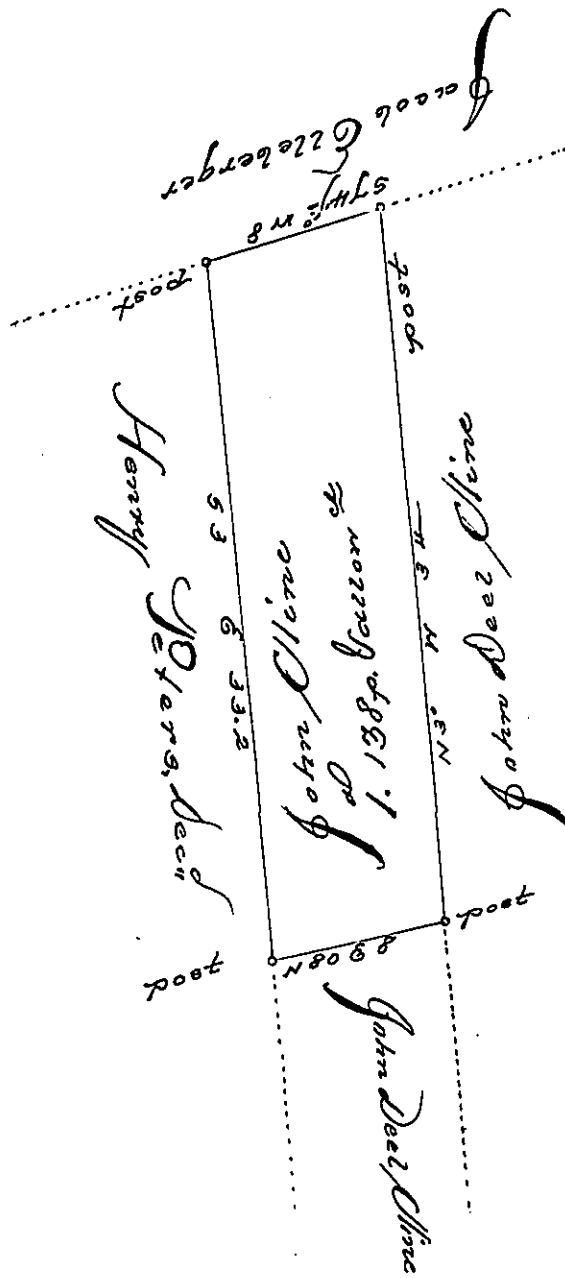 Jacob Elleberger
S74½° W 8
post
post
Henry Peters, Decd
S 3 E 33.2
John Cline
1. 138 p. & allow
N 3° W
John Deel Cline
post
post
N 80 E 8
John Deel Cline